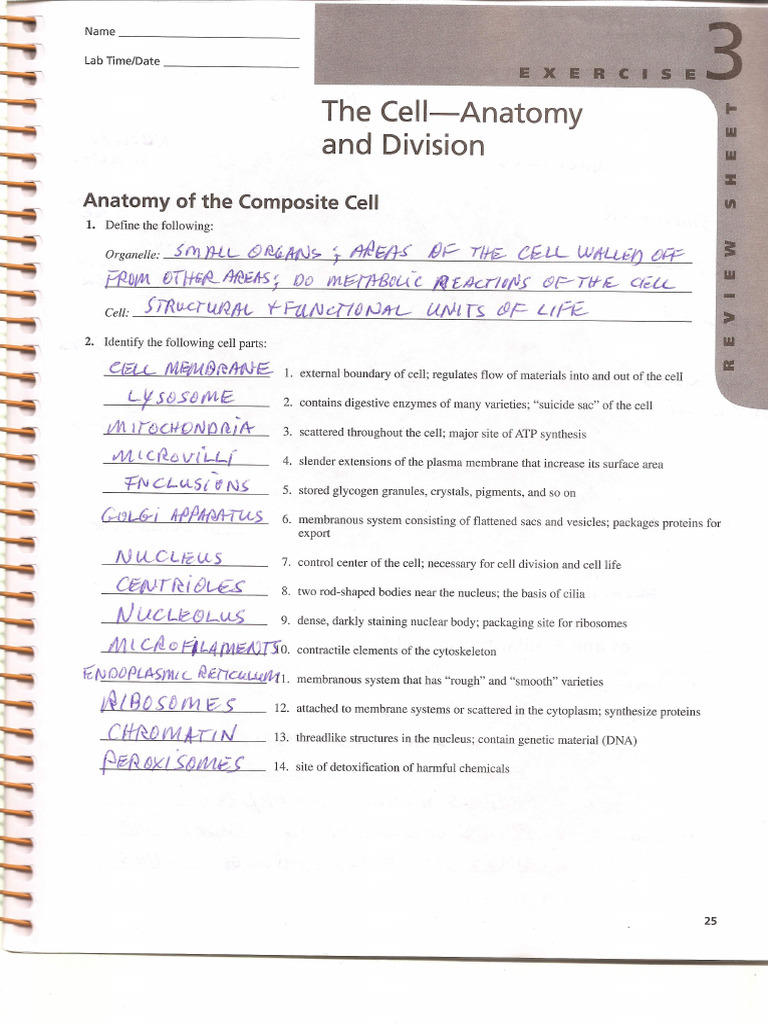 Name
Lab Time/Date
EXERCISE 3
REVIEW SHEET
The Cell—Anatomy
and Division
Anatomy of the Composite Cell
1. Define the following:
Organelle: SMALL ORGANS; AREAS OF THE CELL WALLED OFF
FROM OTHER AREAS; DO METABOLIC REACTIONS OF THE CELL
Cell: STRUCTURAL + FUNCTIONAL UNITS OF LIFE
2. Identify the following cell parts:
CELL MEMBRANE 1. external boundary of cell; regulates flow of materials into and out of the cell
LYSOSOME 2. contains digestive enzymes of many varieties; “suicide sac” of the cell
MITOCHONDRIA 3. scattered throughout the cell; major site of ATP synthesis
MICROVILLI 4. slender extensions of the plasma membrane that increase its surface area
INCLUSIONS 5. stored glycogen granules, crystals, pigments, and so on
GOLGI APPARATUS 6. membranous system consisting of flattened sacs and vesicles; packages proteins for
export
NUCLEUS 7. control center of the cell; necessary for cell division and cell life
CENTRIOLES 8. two rod-shaped bodies near the nucleus; the basis of cilia
NUCLEOLUS 9. dense, darkly staining nuclear body; packaging site for ribosomes
MICROFILAMENTS 10. contractile elements of the cytoskeleton
ENDOPLASMIC RETICULUM 11. membranous system that has “rough” and “smooth” varieties
RIBOSOMES 12. attached to membrane systems or scattered in the cytoplasm; synthesize proteins
CHROMATIN 13. threadlike structures in the nucleus; contain genetic material (DNA)
PEROXISOMES 14. site of detoxification of harmful chemicals
25